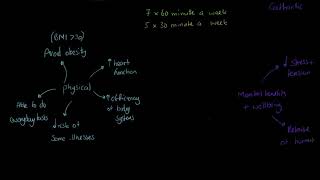 7 x 60 minute a week
5 x 30 minute a week
(BMI >30)
Avoid obesity
↑ heart
function
physical
Able to do
everyday tasks
↓ risk of
some illnesses
↑ efficiency
of body
systems
↓ Stress +
tension
Mental health
+ wellbeing
Release
of